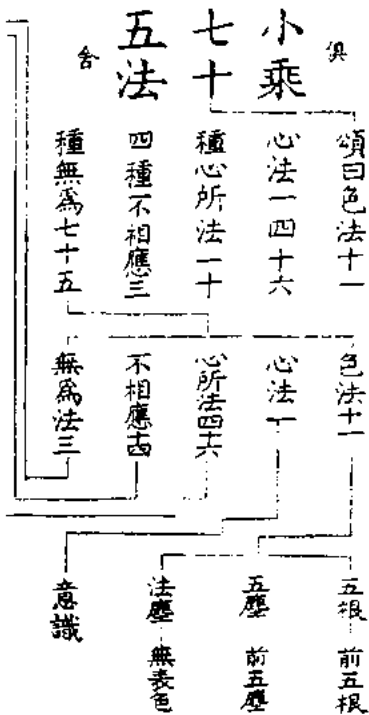 俱
小乘
七十
五法
舍
頌曰色法十一
心法一四十六
種心所法一十
四種不相應三
種無為七十五
色法十一
心法一
心所法四十六
不相應十四
無為法三
五根 前五根
五塵 前五塵
法塵 無表色
意識